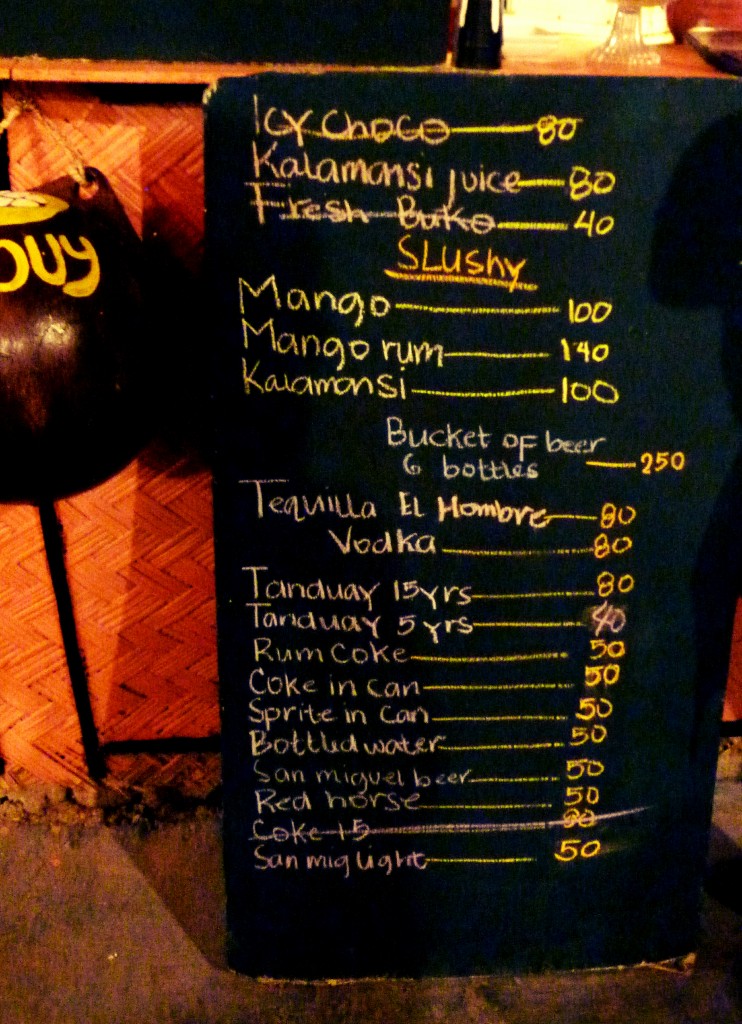 Icy Choco 80
Kalamansi juice 80
Fresh Buko 40
SLushy
Mango 100
Mango rum 140
Kalamansi 100
Bucket of beer
6 bottles 250
Tequilla El Hombre 80
Vodka 80
Tanduay 15yrs 80
Tanduay 5 yrs 40
Rum Coke 50
Coke in can 50
Sprite in can 50
Bottled water 50
San miguel beer 50
Red horse 50
Coke 1.5
San mig light 50
ouy